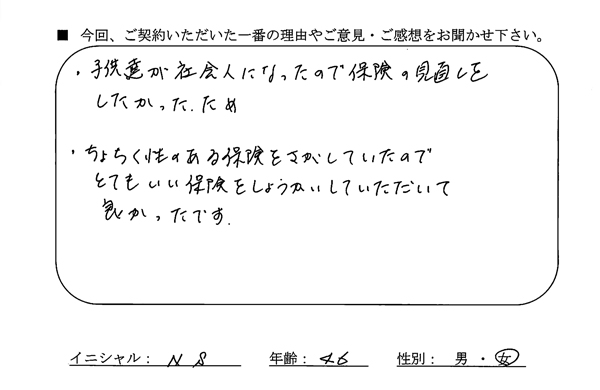 ■ 今回、ご契約いただいた一番の理由やご意見・ご感想をお聞かせ下さい。
・子供達が社会人になったので保険の見直しを
したかった.ため
・ちょちく性のある保険をさがしていたので
とてもいい保険をしょうかいしていただいて
良かったです.
イニシャル: N S 年齢: 46 性別: 男 ・ 女